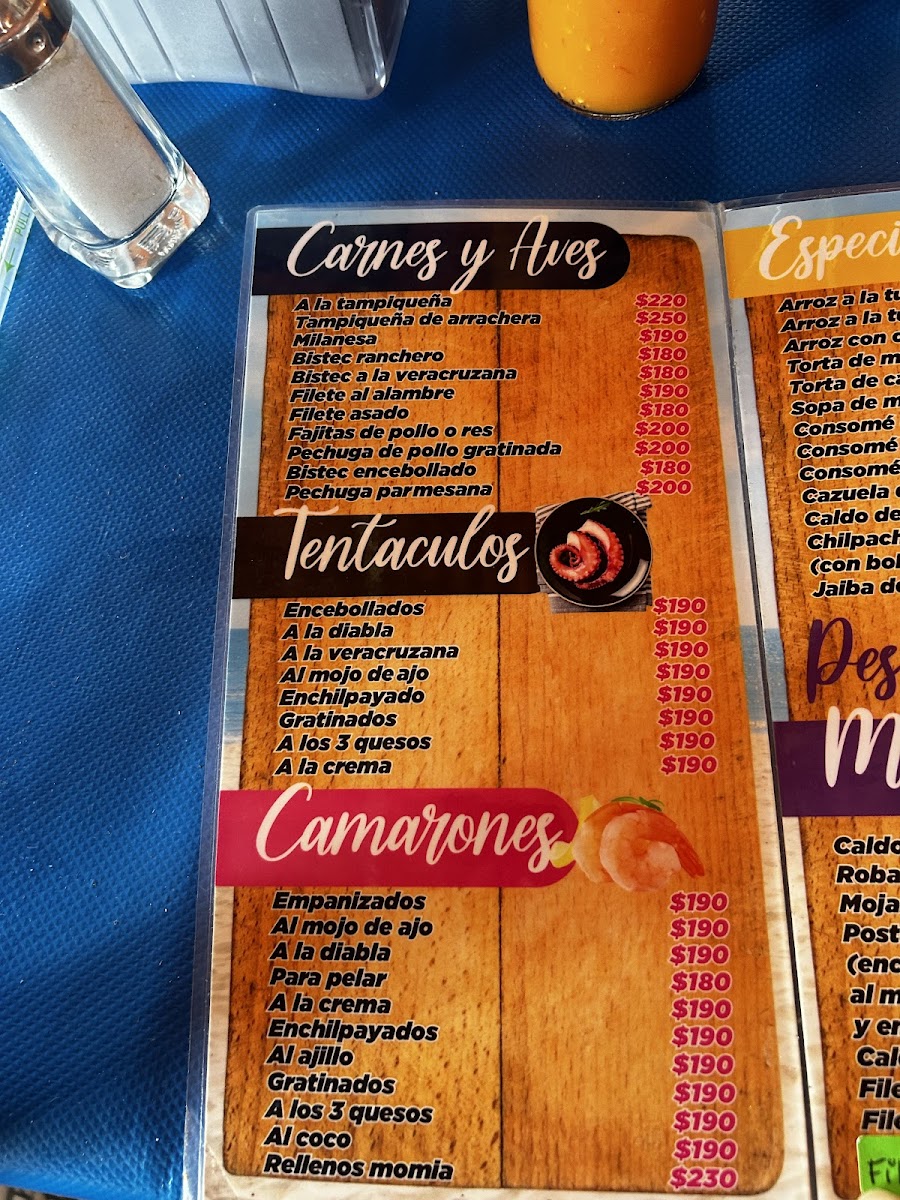 PULL
Carnes y Aves
A la tampiqueña $220
Tampiqueña de arrachera $250
Milanesa $190
Bistec ranchero $180
Bistec a la veracruzana $180
Filete al alambre $190
Filete asado $180
Fajitas de pollo o res $200
Pechuga de pollo gratinada $200
Bistec encebollado $180
Pechuga parmesana $200
Tentaculos
Encebollados $190
A la diabla $190
A la veracruzana $190
Al mojo de ajo $190
Enchilpayado $190
Gratinados $190
A los 3 quesos $190
A la crema $190
Camarones
Empanizados $190
Al mojo de ajo $190
A la diabla $190
Para pelar $180
A la crema $190
Enchilpayados $190
Al ajillo $190
Gratinados $190
A los 3 quesos $190
Al coco $190
Rellenos momia $230
Especi
Arroz a la tu
Arroz a la tu
Arroz con
Torta de m
Torta de ca
Sopa de m
Consomé
Consomé
Consomé
Cazuela
Caldo de
Chilpach
(con bol
Jaiba de
Des
M
Caldo
Roba
Moja
Post
(enc
al m
y en
Cal
File
File